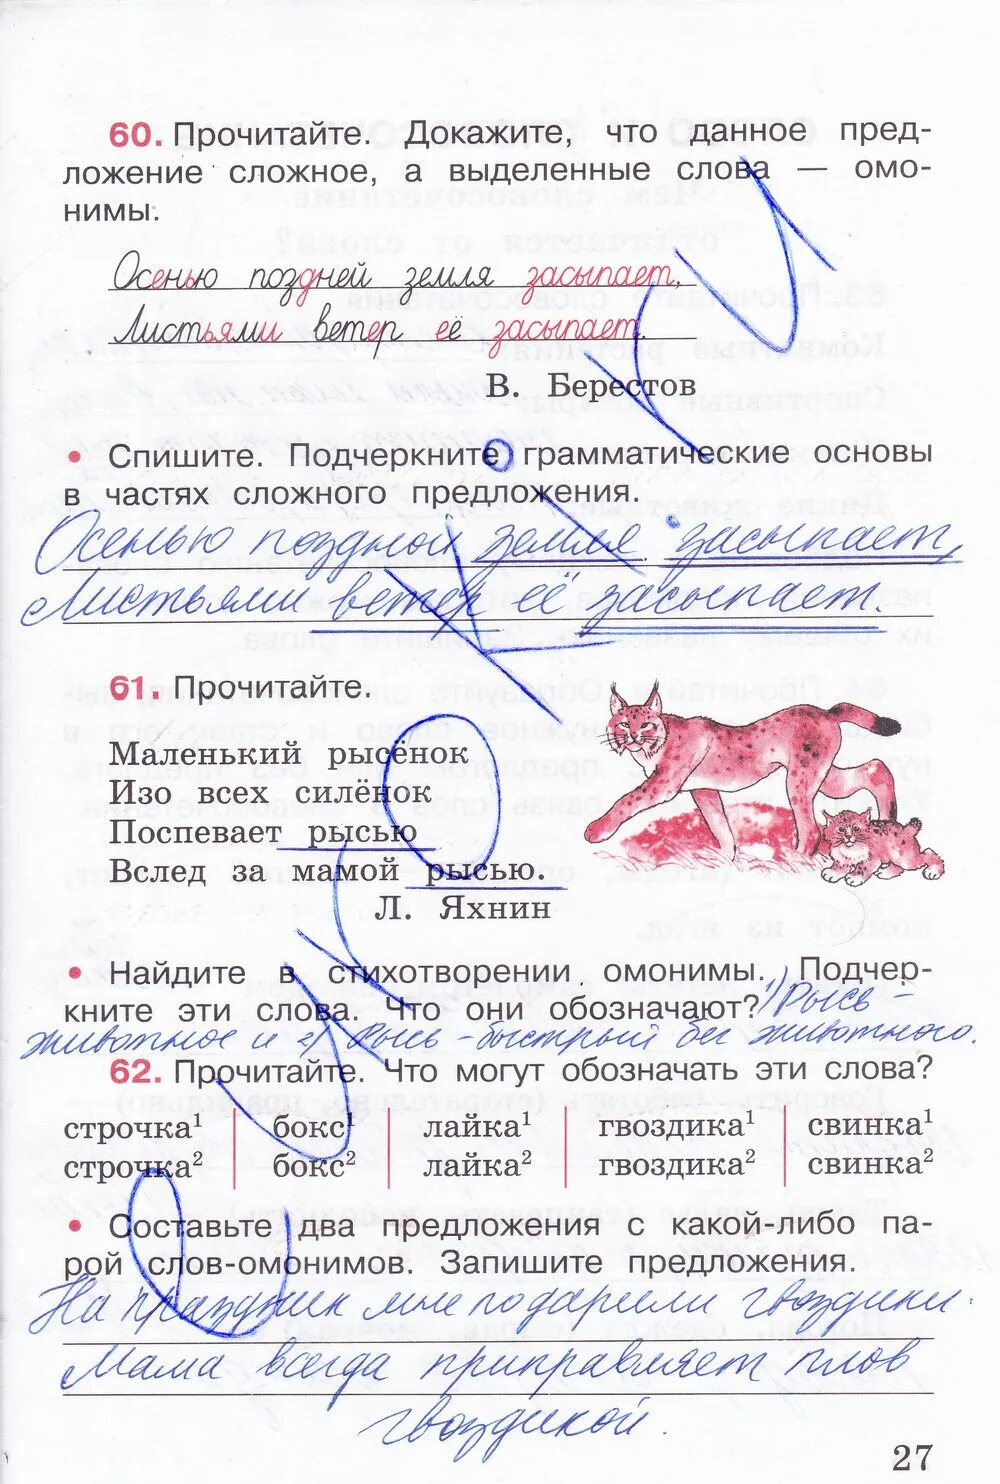 60. Прочитайте. Докажите, что данное пред-
ложение сложное, а выделенные слова — омо-
нимы.
Осенью поздней земля засыпает,
Листьями ветер её засыпает.
В. Берестов
• Спишите. Подчеркните грамматические основы
в частях сложного предложения.
Осенью поздней земля засыпает,
Листьями ветер её засыпает.
61. Прочитайте.
Маленький рысёнок
Изо всех силёнок
Поспевает рысью
Вслед за мамой рысью.
Л. Яхнин
• Найдите в стихотворении омонимы. Подчер-
кните эти слова. Что они обозначают? 1) Рысь -
животное и 2) Рысь - быстрый бег животного.
62. Прочитайте. Что могут обозначать эти слова?
строчка¹ бокс¹ лайка¹ гвоздика¹ свинка¹
строчка² бокс² лайка² гвоздика² свинка²
• Составьте два предложения с какой-либо па-
рой слов-омонимов. Запишите предложения.
На праздник мне подарили гвоздики.
Мама всегда приправляет плов
гвоздикой.
27